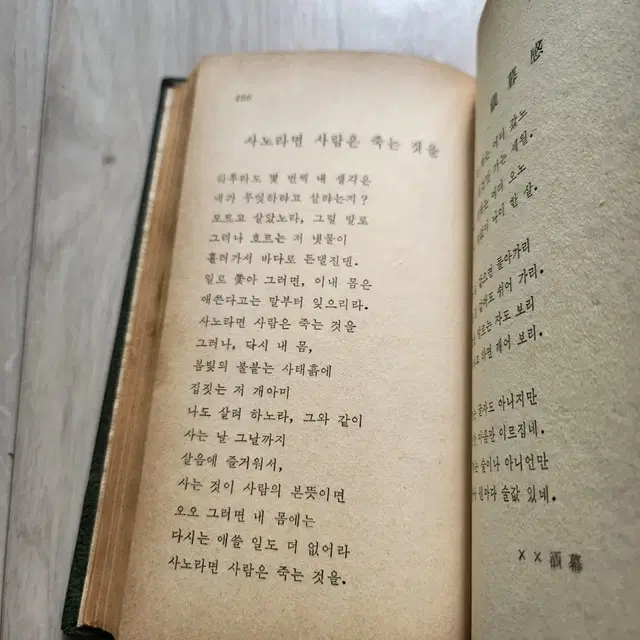 486
사노라면 사람은 죽는 것을
하루라도 몇 번씩 내 생각은
내가 무엇하라고 살라는지?
모르고 살았노라, 그럴 말로
그러나 흐르는 저 냇물이
흘러가서 바다로 든댈진댄.
일로 쫓아 그러면, 이내 몸은
애쓴다고는 말부터 잊으리라.
사노라면 사람은 죽는 것을
그러나, 다시 내 몸,
봄빛의 불붙는 사태흙에
집짓는 저 개아미
나도 살려 하노라, 그와 같이
사는 날 그날까지
살음에 즐거워서,
사는 것이 사람의 본뜻이면
오오 그러면 내 몸에는
다시는 애쓸 일도 더 없어라
사노라면 사람은 죽는 것을.
感
어디 갔노
가는 세월.
어디 오노
낙이 한 살.
돌아가리
쉬어 가리.
자도 보리
하면 깨어 보리.
아니지만
마음만 이르집네.
술이나 아니언만
술값 있네.
××酒幕